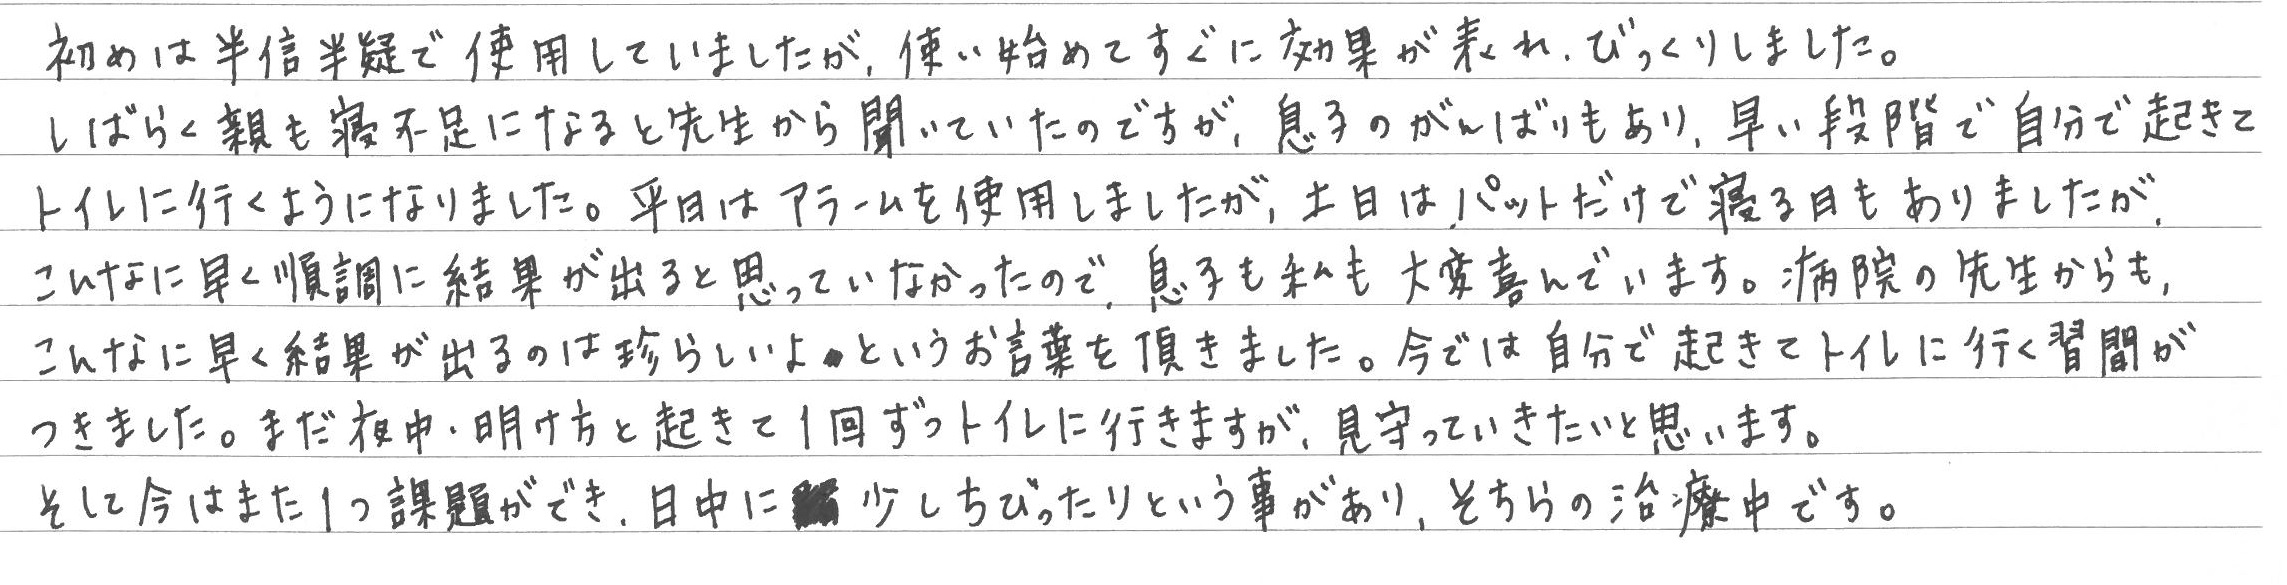 初めは半信半疑で使用していましたが、使い始めてすぐに効果が表れ、びっくりしました。
しばらく親も寝不足になると先生から聞いていたのですが、息子のがんばりもあり、早い段階で自分で起きて
トイレに行くようになりました。平日はアラームを使用しましたが、土日はパットだけで寝る日もありましたが、
こんなに早く順調に結果が出ると思っていなかったので、息子も私も大変喜んでいます。病院の先生からも、
こんなに早く結果が出るのは珍らしいよというお言葉を頂きました。今では自分で起きてトイレに行く習間が
つきました。まだ夜中・明け方と起きて1回ずつトイレに行きますが、見守っていきたいと思います。
そして今はまた1つ課題ができ、日中に少しちびったりという事があり、そちらの治療中です。